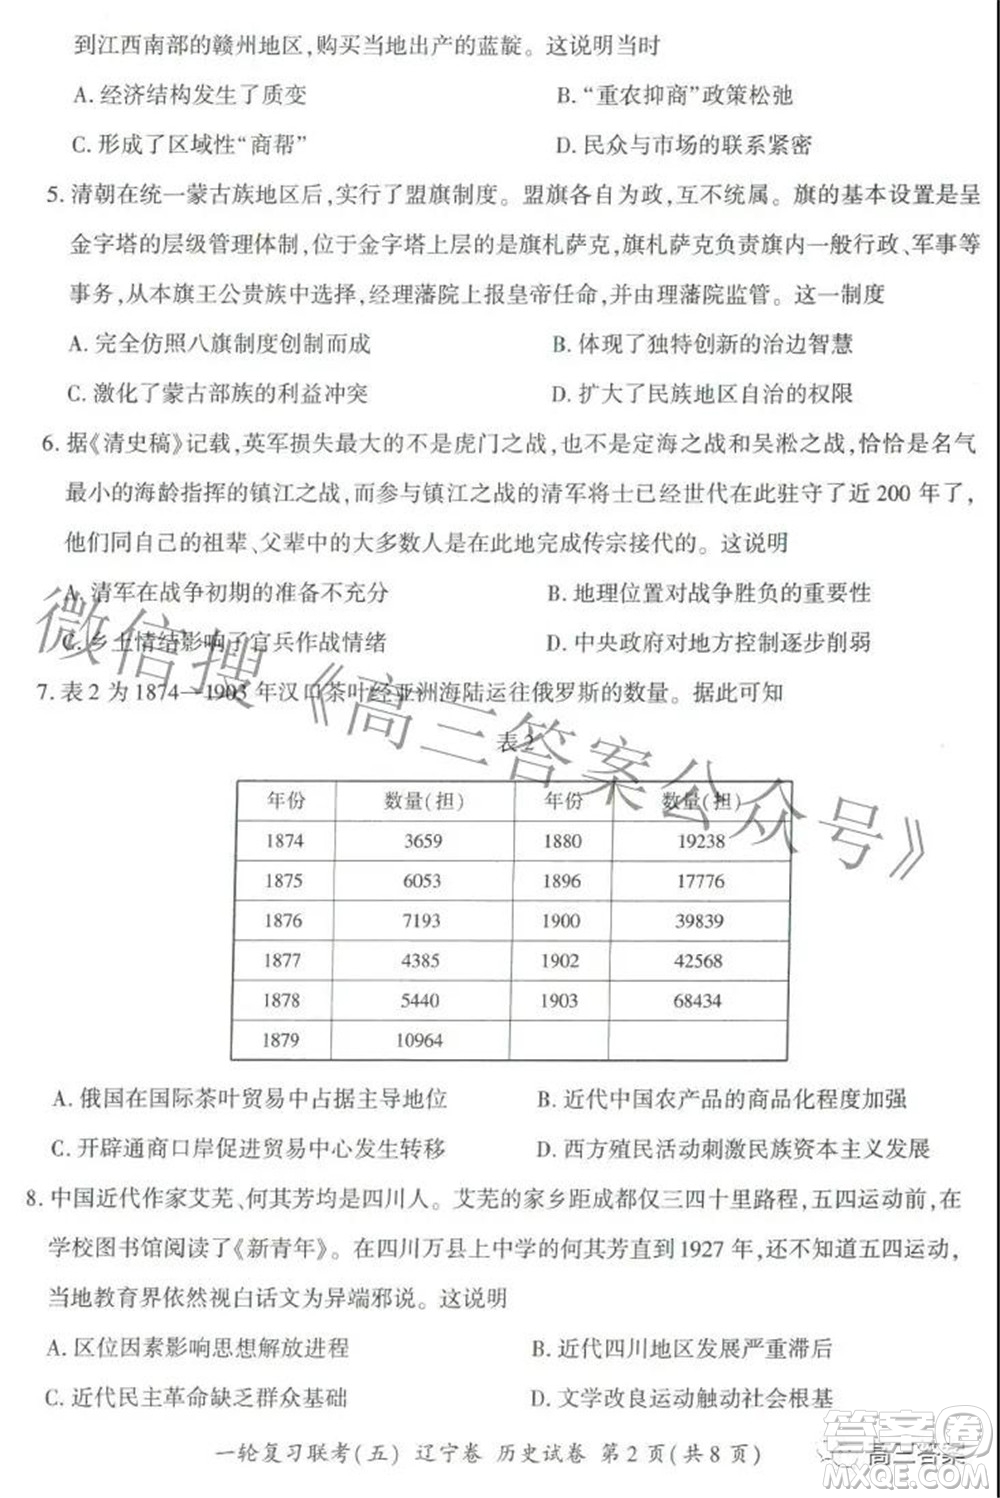 到江西南部的赣州地区,购买当地出产的蓝靛。这说明当时
A. 经济结构发生了质变 B. “重农抑商”政策松弛
C. 形成了区域性“商帮” D. 民众与市场的联系紧密
5. 清朝在统一蒙古族地区后,实行了盟旗制度。盟旗各自为政,互不统属。旗的基本设置是呈
金字塔的层级管理体制,位于金字塔上层的是旗札萨克,旗札萨克负责旗内一般行政、军事等
事务,从本旗王公贵族中选择,经理藩院上报皇帝任命,并由理藩院监管。这一制度
A. 完全仿照八旗制度创制而成 B. 体现了独特创新的治边智慧
C. 激化了蒙古部族的利益冲突 D. 扩大了民族地区自治的权限
6. 据《清史稿》记载,英军损失最大的不是虎门之战,也不是定海之战和吴淞之战,恰恰是名气
最小的海龄指挥的镇江之战,而参与镇江之战的清军将士已经世代在此驻守了近 200 年了,
他们同自己的祖辈、父辈中的大多数人是在此地完成传宗接代的。这说明
A. 清军在战争初期的准备不充分 B. 地理位置对战争胜负的重要性
C. 乡土情结影响了官兵作战情绪 D. 中央政府对地方控制逐步削弱
7. 表 2 为 1874—1903 年汉口茶叶经亚洲海陆运往俄罗斯的数量。据此可知
表 2
年份 数量(担) 年份 数量(担)
1874 3659 1880 19238
1875 6053 1896 17776
1876 7193 1900 39839
1877 4385 1902 42568
1878 5440 1903 68434
1879 10964
A. 俄国在国际茶叶贸易中占据主导地位 B. 近代中国农产品的商品化程度加强
C. 开辟通商口岸促进贸易中心发生转移 D. 西方殖民活动刺激民族资本主义发展
8. 中国近代作家艾芜、何其芳均是四川人。艾芜的家乡距成都仅三四十里路程,五四运动前,在
学校图书馆阅读了《新青年》。在四川万县上中学的何其芳直到 1927 年,还不知道五四运动,
当地教育界依然视白话文为异端邪说。这说明
A. 区位因素影响思想解放进程 B. 近代四川地区发展严重滞后
C. 近代民主革命缺乏群众基础 D. 文学改良运动触动社会根基
一轮复习联考(五) 辽宁卷 历史试卷 第 2 页(共 8 页)
微信搜《高三答案公众号》
高三答案
答案圈
MXQE.COM